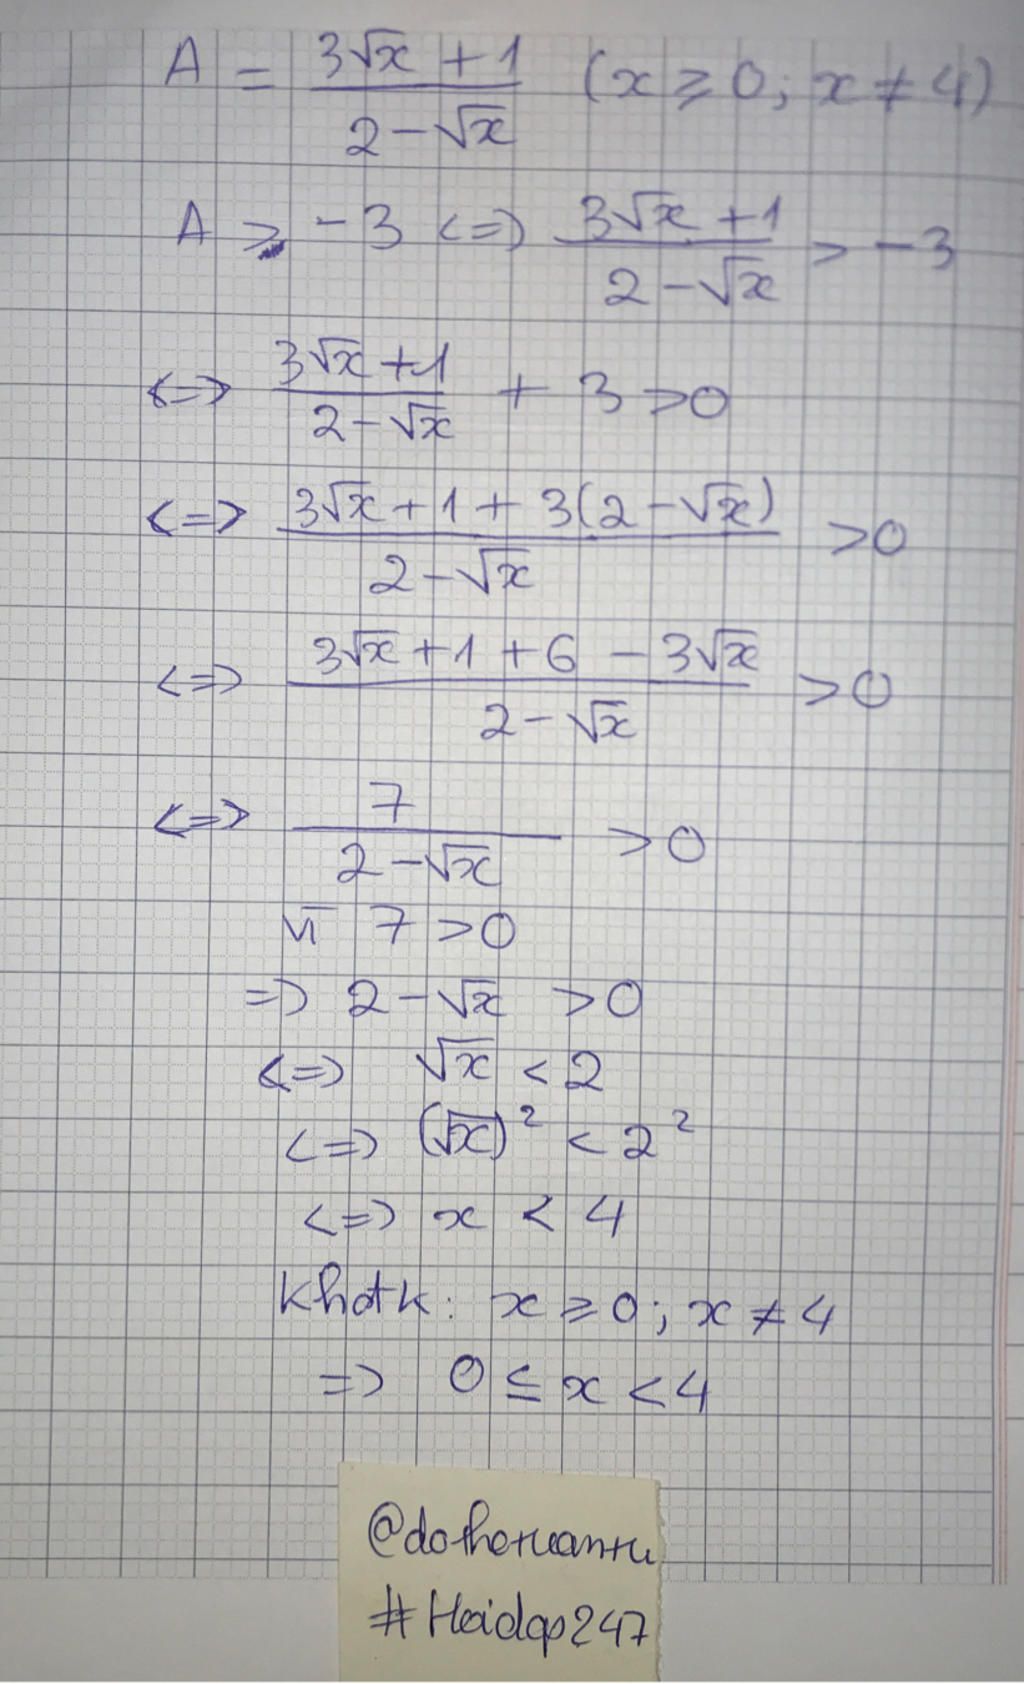 A = (3√x + 1)/(2 - √x) (x ≥ 0; x ≠ 4)
A > -3 <=> (3√x + 1)/(2 - √x) > -3
<=> (3√x + 1)/(2 - √x) + 3 > 0
<=> (3√x + 1 + 3(2 - √x))/(2 - √x) > 0
<=> (3√x + 1 + 6 - 3√x)/(2 - √x) > 0
<=> 7/(2 - √x) > 0
Vì 7 > 0
=> 2 - √x > 0
<=> √x < 2
<=> (√x)² < 2²
<=> x < 4
Khđtk: x ≥ 0; x ≠ 4
=> 0 ≤ x < 4
#Hoidap247